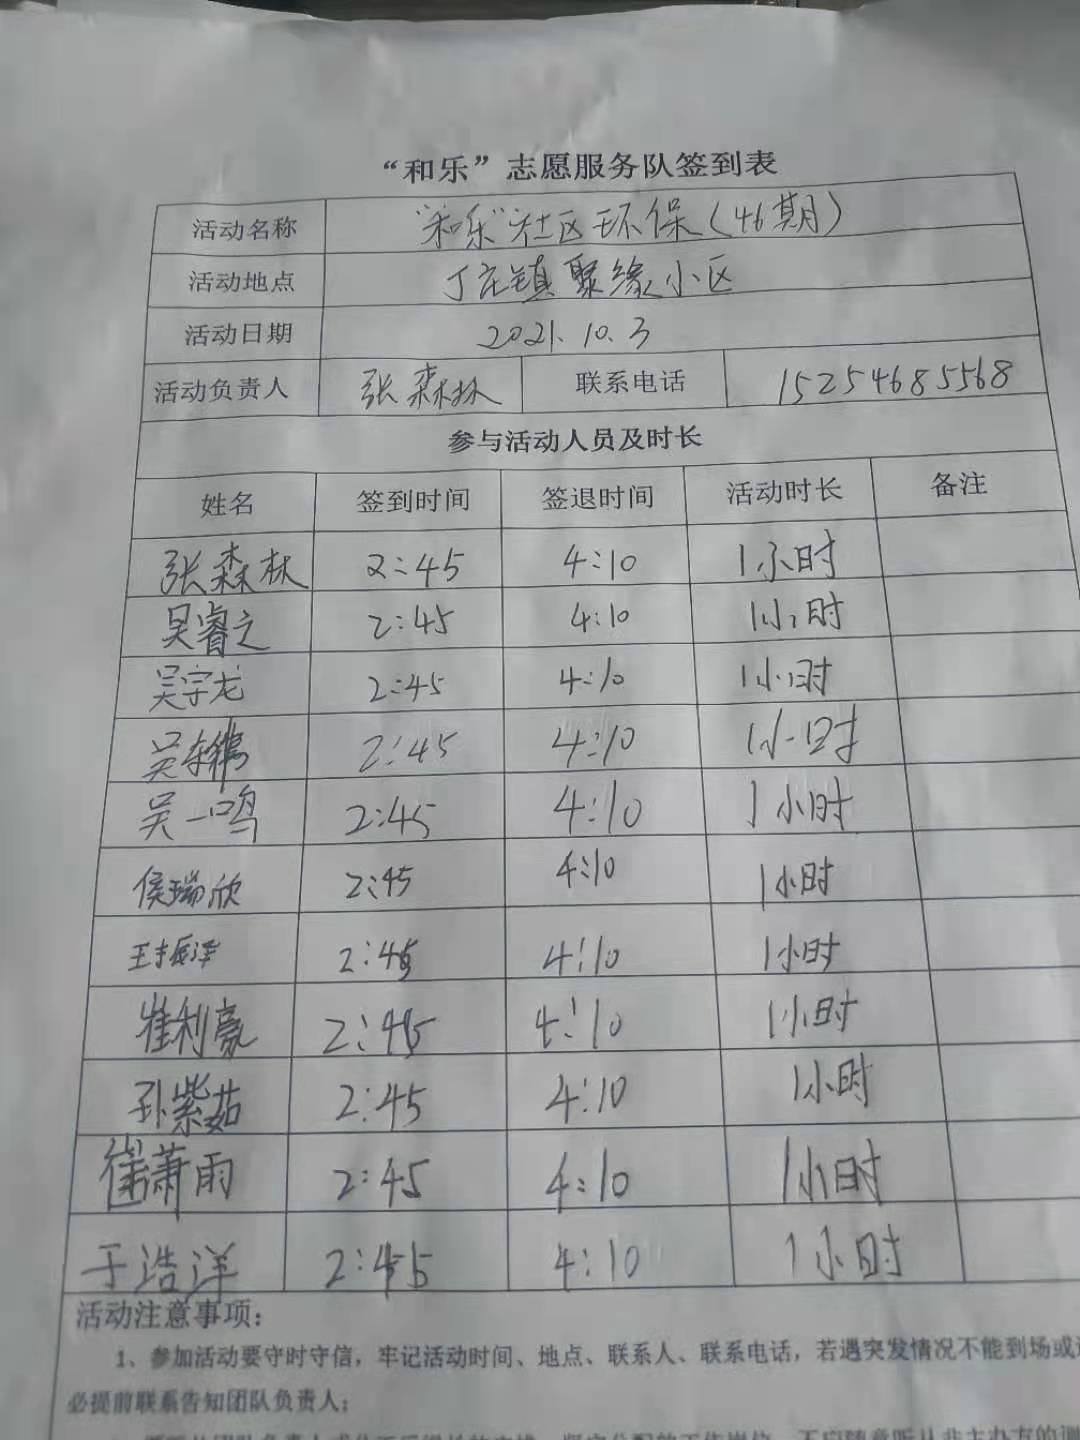 “和乐”志愿服务队签到表
活动名称 “和乐”社区环保(46期)
活动地点 丁庄镇聚缘小区
活动日期 2021.10.3
活动负责人 张森林 联系电话 15254685568
参与活动人员及时长
姓名 签到时间 签退时间 活动时长 备注
张森林 2:45 4:10 1小时
吴睿之 2:45 4:10 1小时
吴宇龙 2:45 4:10 1小时
吴 2:45 4:10 1小时
吴一鸣 2:45 4:10 1小时
侯瑞欣 2:45 4:10 1小时
王振泽 2:45 4:10 1小时
崔利豪 2:45 4:10 1小时
孙紫茹 2:45 4:10 1小时
崔萧雨 2:45 4:10 1小时
于浩洋 2:45 4:10 1小时
活动注意事项：
1、参加活动要守时守信，牢记活动时间、地点、联系人、联系电话，若遇突发情况不能到场或
必提前联系告知团队负责人；